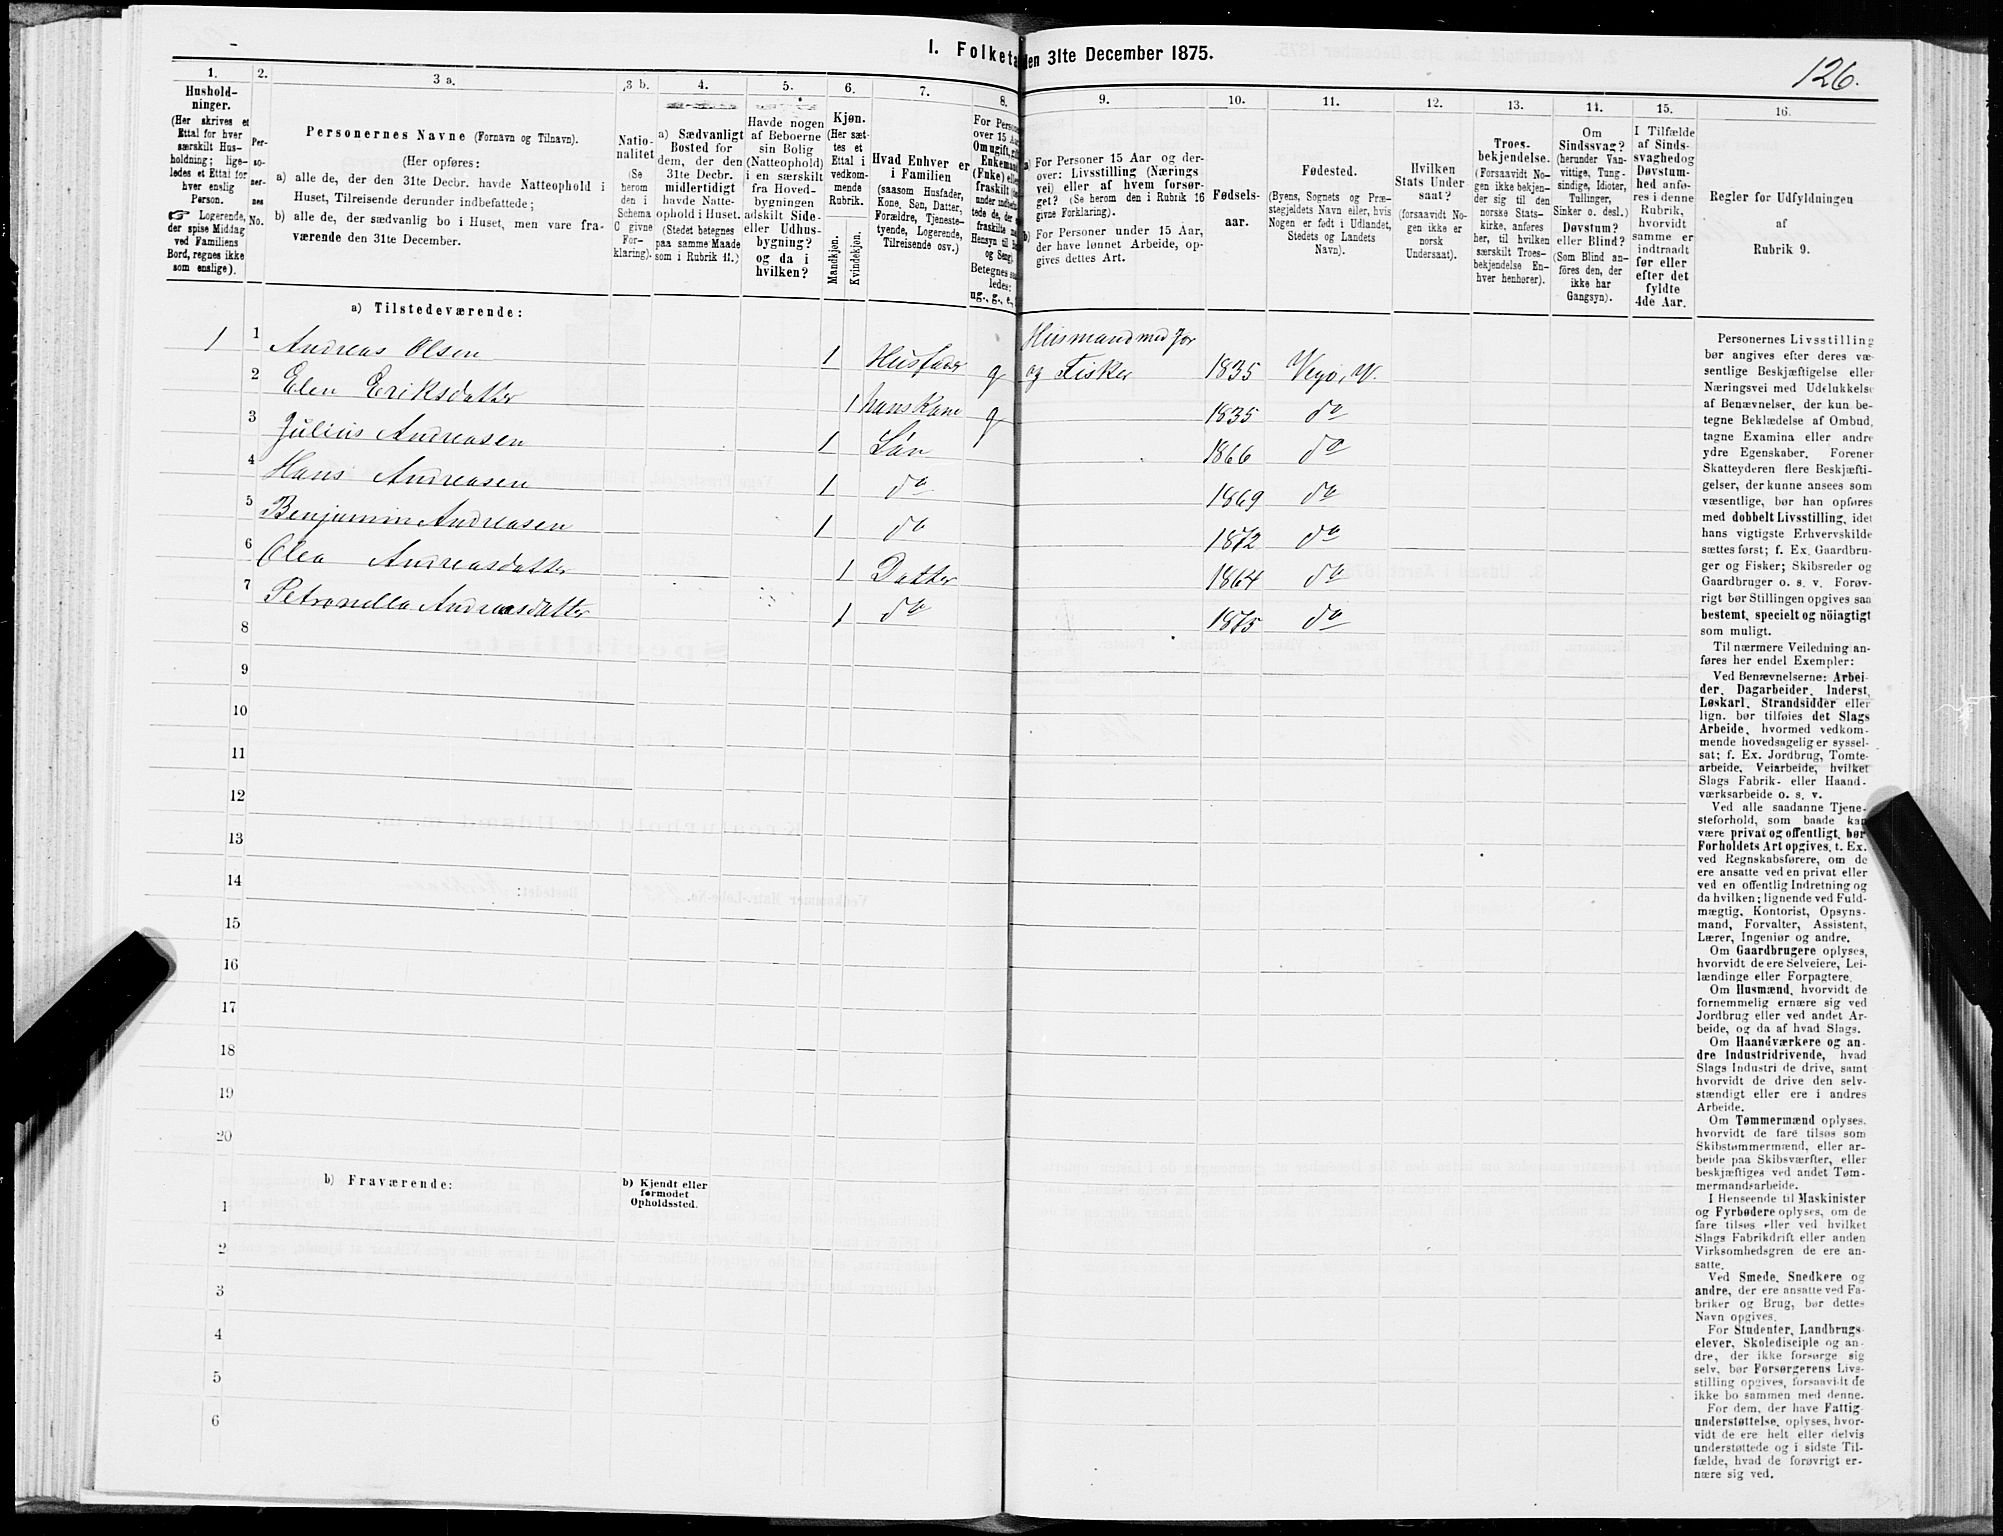 I. Folketæ
den 31te December 1875.
126.
1.
2.
3 a.
3 b.
4.
5.
6.
7.
8.
9.
10.
11.
12.
13.
14.
15.
16.
Hushold-
ninger.
(Her skrives et
Ettal for hver
særskilt Hus-
holdning; lige-
ledes et Ettal for
hver enslig
Person.
☞ Logerende,
der spise Middag
ved Familiens
Bord, regnes ikke
som enslige).
Per-
so-
ner-
nes
No.
Personernes Navne (Fornavn og Tilnavn).
(Her opføres:
a) alle de, der den 31te Decbr. havde Natteophold i
Huset, Tilreisende derunder indbefattede;
b) alle de, der sædvanlig bo i Huset, men vare fra-
værende den 31te December.
Natio-
nalitet
(Se
herom
den i
Schema
C givne
For-
klaring).
a) Sædvanligt
Bosted for
dem, der den
31te Decbr.
midlertidigt
havde Natte-
ophold i Huset.
(Stedet betegnes
paa samme Maade
som i Rubrik 11.)
Havde nogen
af Beboerne
sin Bolig
(Natteophold)
i en særskilt
fra Hoved-
bygningen
adskilt Side-
eller Udhus-
bygning?
og da i
hvilken?
Kjøn.
(Her sæt-
tes et
Ettal i
vedkom-
mende
Rubrik.
Mandkjøn.
Kvindekjøn.
Hvad Enhver er
i Familien
(saasom Husfader,
Kone, Søn, Datter,
Forældre, Tjeneste-
tyende, Logerende,
Tilreisende osv.)
For Persone
over 15 Aa
Om ugift, gif
Enkemand
(Enke) elle
fraskilt
under indbefat-
tede de, der
fraskilte
Hensyn til B
og Seng).
Betegnes saa
ledes:
ug., g., e.,
a) For Personer 15 Aar og der-
over: Livsstilling (Nærings
vei) eller af hvem forsør-
get? (Se herom i Rubrik 16
givne Forklaring).
b) For Personer under 15 Aar,
der have lønnet Arbeide, op-
gives dettes Art.
Fødsels-
aar.
Fødested.
(Byens, Sognets og Præ-
stegjeldets Navn eller, hvis
Nogen er født i Udlandet,
Stedets og Landets
Navn).
Hvilken
Stats Under
saat?
(forsaavidt No-
gen ikke er
norsk
Undersaat).
Troes-
bekjendelse.
(Forsaavidt No-
gen ikke bekjen-
der sig til den
norske Stats-
kirke, anføres
her, til hvilken
særskilt Troes-
bekjendelse En-
hver henhører).
Om
Sindssvag?
(herunder Van-
vittige, Tung-
sindige, Idioter,
Tullinger,
Sinker o. desl.)
Døvstum?
eller Blind?
(Som Blind an-
føres den, der
ikke har
Gangsyn).
I Tilfælde
af Sinds-
svaghed og
Døvstum-
hed anfø-
res i denne
Rubrik,
hvorvidt
samme er
indtraadt
før eller
efter det
fyldte
4de Aar.
Regler for Udfyldningen
af
Rubrik 9.
a) Tilstedeværende:
1 1 Andreas Olsen 1 Husfader g Husmand med Jor
og Fisker 1835 Vegø, V.
2 Elen Eriksdatter 1 hans Kone g 1835 do
3 Julius Andreasen 1 Søn 1866 do
4 Hans Andreasen 1 do 1869 do
5 Benjamin Andreasen 1 do 1872 do
6 Olea Andreasdatter 1 Datter 1864 do
7 Petronella Andreasdatter 1 do 1875 do
8
9
10
11
12
13
14
15
16
17
18
19
20
b) Fraværende:
b) Kjendt eller
formodet
Opholdssted.
1
2
3
4
5
6
Personernes Livsstilling
bør angives efter deres væ-
sentlige Beskjæftigelse eller
Næringsvei med Udelukkelse
af Benævnelser, der kun be-
tegne Beklædelse af Ombud,
tagne Examina eller andre
ydre Egenskaber. Forener
Skatteyderen flere Beskjæfti-
gelser, der kunne ansees som
væsentlige, bør han opføres
med dobbelt Livsstilling, idet
hans vigtigste Erhvervskilde
sættes først; f. Ex. Gaardbru-
ger og Fisker; Skibsreder og
Gaardbruger o. s. v. Forøv-
rigt bør Stillingen opgives saa
bestemt, specielt og nöiagtigt
som muligt.
Til nærmere Veiledning an-
føres her endel Exempler:
Ved Benævnelserne: Arbei-
der, Dagarbeider, Inderst,
Løskarl, Strandsidder eller
lign. bør tilføies det Slags
Arbeide, hvormed vedkom-
mende hovedsagelig er syssel-
sat; f. Ex. Jordbrug, Tomte-
arbeide, Veiarbeide, hvilket
Slags Fabrik- eller Haand-
værksarbeide o. s. v.
Ved alle saadanne Tjene-
steforhold, som baade kan
være privat og offentligt, bør
Forholdets Art opgives, t. Ex.
ved Regnskabsførere, om de
ere ansatte ved en privat eller
ved en offentlig Indretning og
da hvilken; lignende ved Fuld-
mægtig, Kontorist, Opsyns-
mand, Forvalter, Assistent,
Lærer, Ingeniør og andre.
Om Gaardbrugere oplyses,
hvorvidt de ere Selveiere, Lei-
lændinge eller Forpagtere.
Om Husmænd, hvorvidt de
fornemmelig ernære sig ved
Jordbrug eller ved andet Ar-
beide, og da af hvad Slags.
Om Haandværkere og an-
dre Industridrivende, hvad
Slags Industri de drive, samt
hvorvidt de drive den selv-
stændigt eller ere i andres
Arbeide.
Om Tømmermænd oplyses,
hvorvidt de fare tilsøs som
Skibstømmermænd, eller ar-
beide paa Skibsværfter, eller
beskjæftiges ved andet Tøm-
mermandsarbeide.
I Henseende til Maskinister
og Fyrbødere oplyses, om de
fare tilsøs eller ved hvilket
Slags Fabrikdrift eller anden
Virksomhedsgren de ere an-
satte.
Ved Smede, Snedkere og
andre, der ere ansatte ved Fa-
briker og Brug, bør dettes
Navn opgives.
For Studenter, Landbrugs-
elever, Skoledisciple og an-
dre, der ikke forsørge sig
selv, bør Forsørgerens Livs-
stilling opgives, forsaavidt de
ikke bo sammen med denne.
For dem, der have Fattig-
understøttelse, oplyses, hvor-
vidt de ere helt eller delvis
understøttede og i sidste Til-
fælde, hvad de forøvrigt er-
nære sig ved.